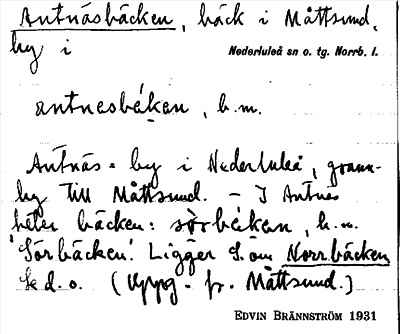 Antnäsbäcken, bäck i Måttsund,
by i Nederluleå sn o. tg. Norrb. l.
antnesbéken, b.m.
Antnäs = by i Nederluleå, grann-
by till Måttsund. - I Antnäs
heter bäcken: sörbékən, b.m.
'Sörbäcken'. Ligger S. om Norrbäcken
se d.o. (Uppg. fr. Måttsund.)
EDVIN BRÄNNSTRÖM 1931